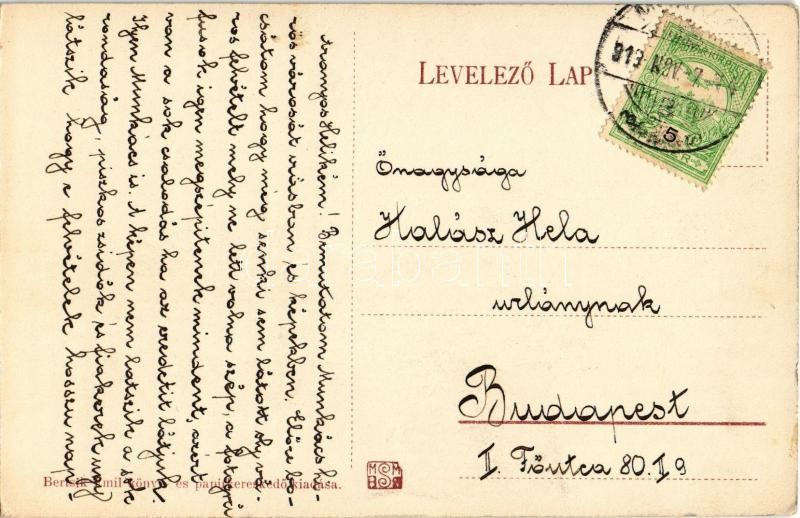 LEVELEZŐ LAP
913 NOV
5
Őnagysága
Halász Hela
urlánynak
Budapest
I. Főutca 80. I 9
Aranyos Helikém! Bemutatom Munkács hi-
rös városát irásban és képekben. Előre bo-
csátom hogy még senki sem látott oly vá-
ros felvételt mely ne lett volna szép, a fotogra
fusok igen megszépitenek mindent, azért
van a sok csalodás ha az eredetit látjuk.
Ilyen Munkács is. A képen nem latszik a sok
rondaság, piszkos zsidók és fiakerek ugy
látszik hogy e felvételek hosszu nap
Bertsik Emil könyv- és papirkereskedő kiadása.